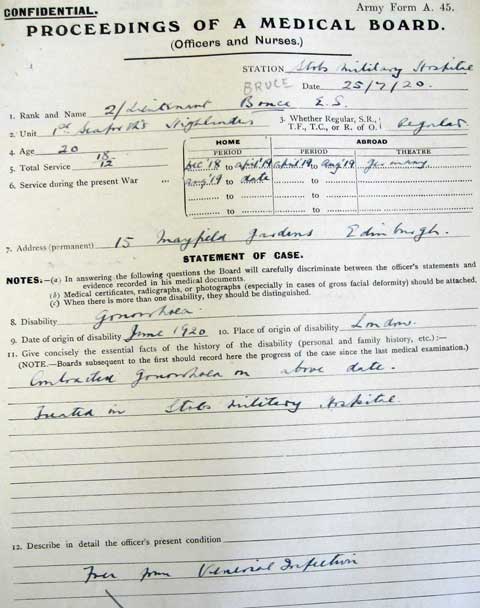 CONFIDENTIAL.
Army Form A. 45.
PROCEEDINGS OF A MEDICAL BOARD.
(Officers and Nurses.)
STATION Stobs Military Hospital
BRUCE Date 25/7/20.
1. Rank and Name 2/Lieutenant Bruce E.S.
2. Unit 1st Seaforth Highlanders 3. Whether Regular, S.R., T.F., T.C., or R. of O. Regular
4. Age 20
5. Total Service 18/12
HOME ABROAD
PERIOD PERIOD THEATRE
6. Service during the present War Dec '18 to April '19 April '19 to Aug '19 Germany
Aug '19 to date to
to to
to to
7. Address (permanent) 15 Mayfield Gardens Edinburgh.
STATEMENT OF CASE.
NOTES.—(a) In answering the following questions the Board will carefully discriminate between the officer's statements and
evidence recorded in his medical documents.
(b) Medical certificates, radiographs, or photographs (especially in cases of gross facial deformity) should be attached.
(c) When there is more than one disability, they should be distinguished.
8. Disability Gonorrhoea.
9. Date of origin of disability June 1920 10. Place of origin of disability London.
11. Give concisely the essential facts of the history of the disability (personal and family history, etc.):—
(NOTE.—Boards subsequent to the first should record here the progress of the case since the last medical examination.)
Contracted Gonorrhoea on above date.
Treated in Stobs Military Hospital.
12. Describe in detail the officer's present condition
Free from Venereal Infection